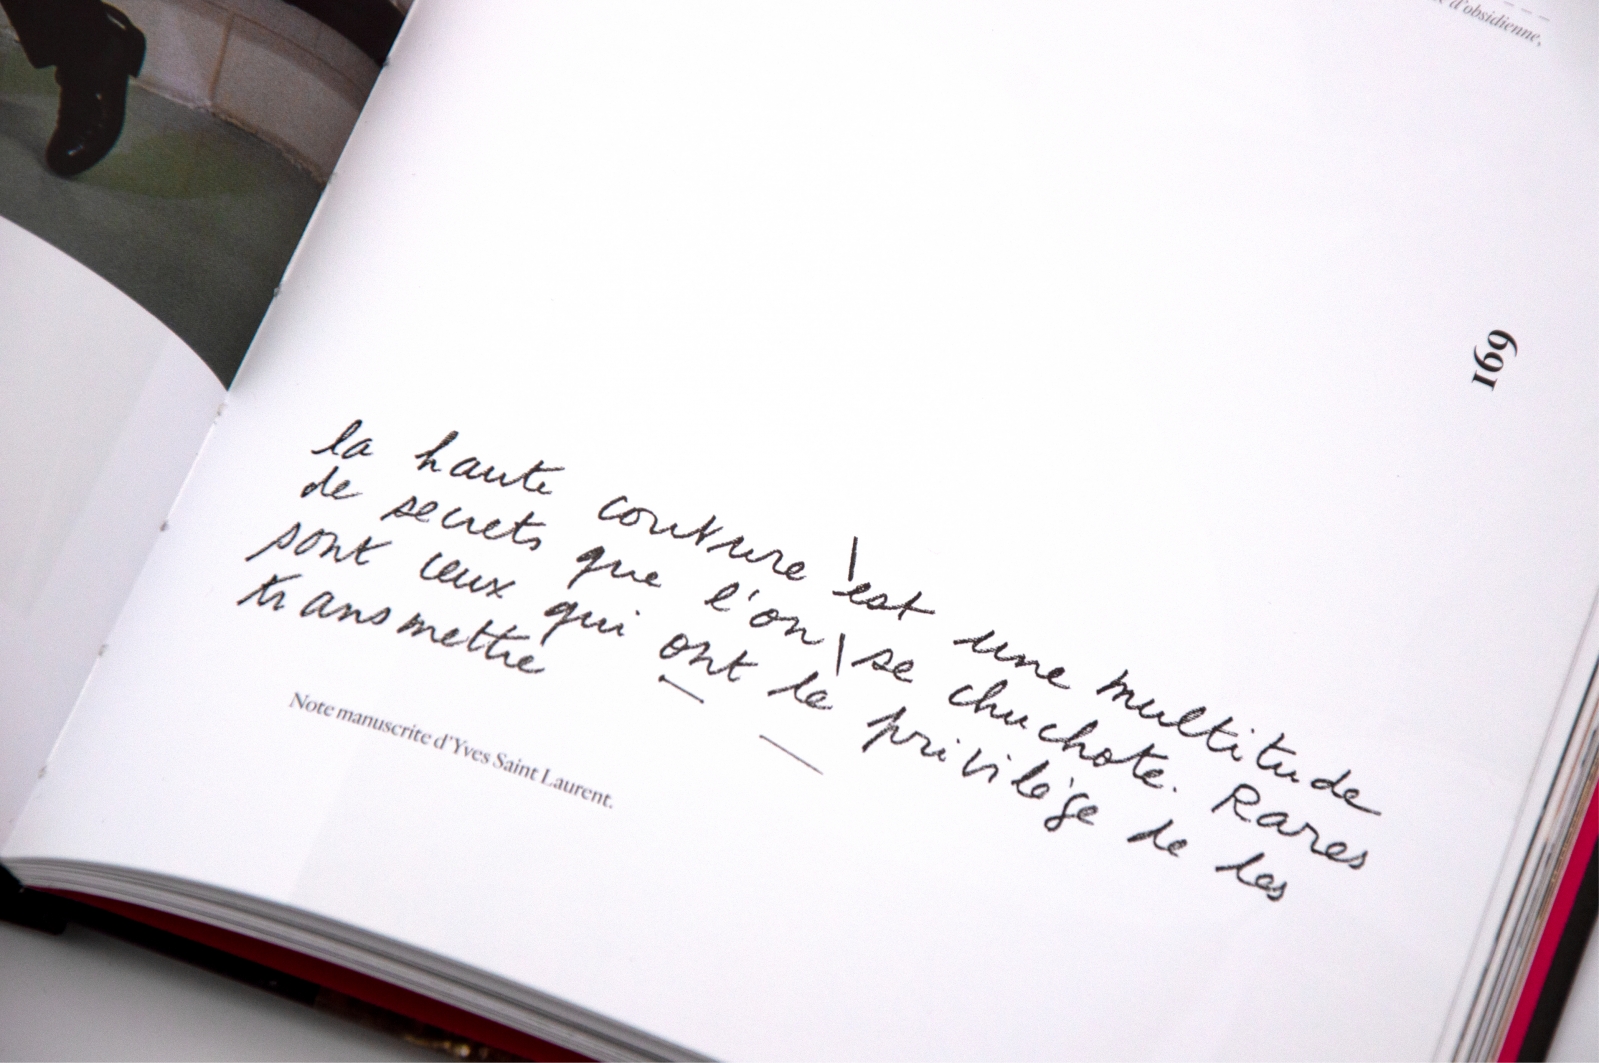 d'obsidienne,
169
la haute couture est une multitude
de secrets que l'on se chuchote. Rares
sont ceux qui ont le privilège de les
transmettre
Note manuscrite d'Yves Saint Laurent.